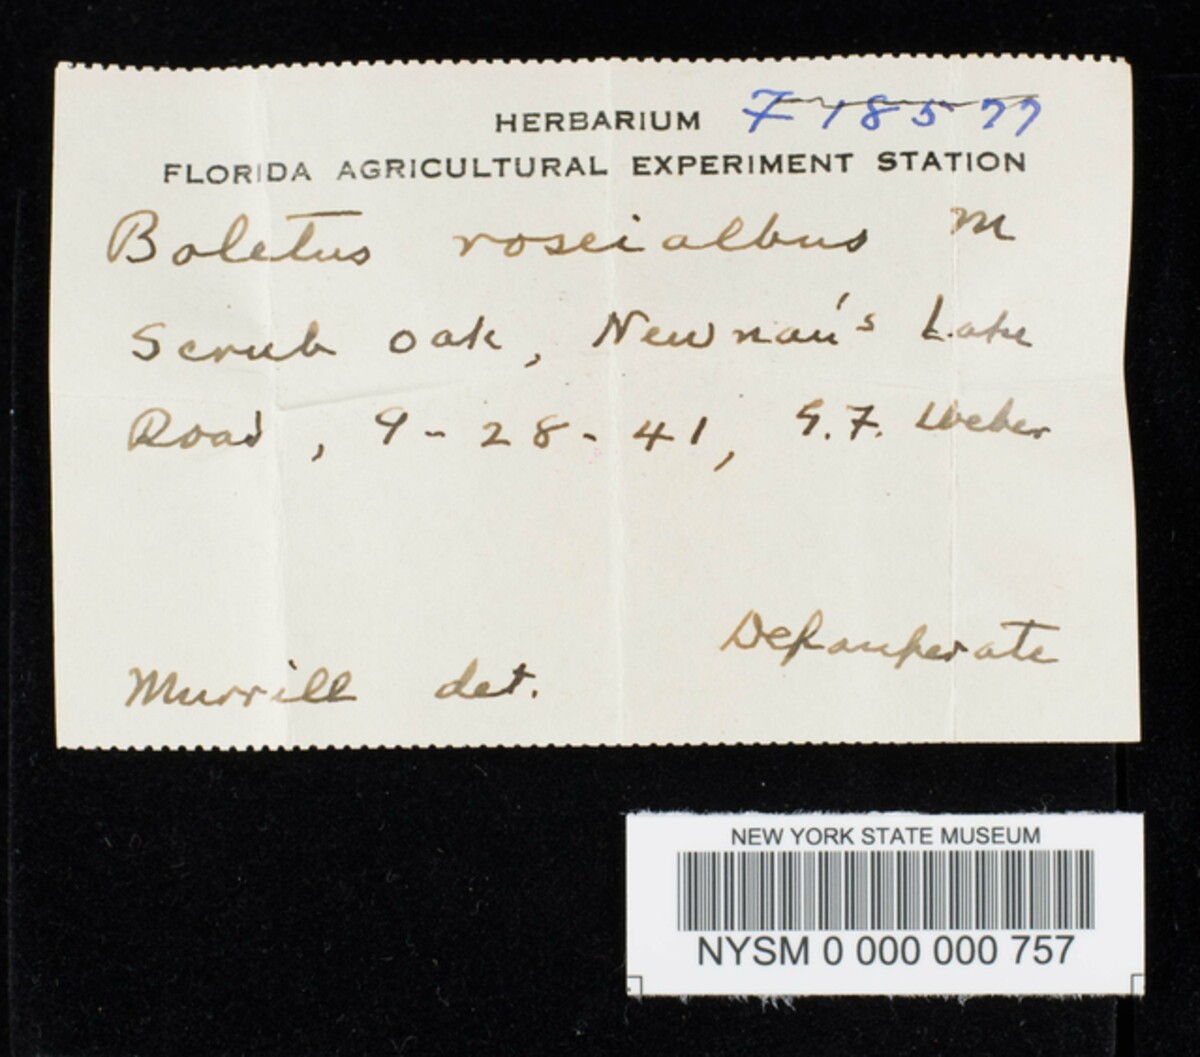 HERBARIUM F 18577
FLORIDA AGRICULTURAL EXPERIMENT STATION
Boletus roseialbus M
Scrub oak, Newnan's Lake
Road, 9-28-41, G.F. Weber
Depauperate
Murrill det.
NEW YORK STATE MUSEUM
NYSM 0 000 000 757